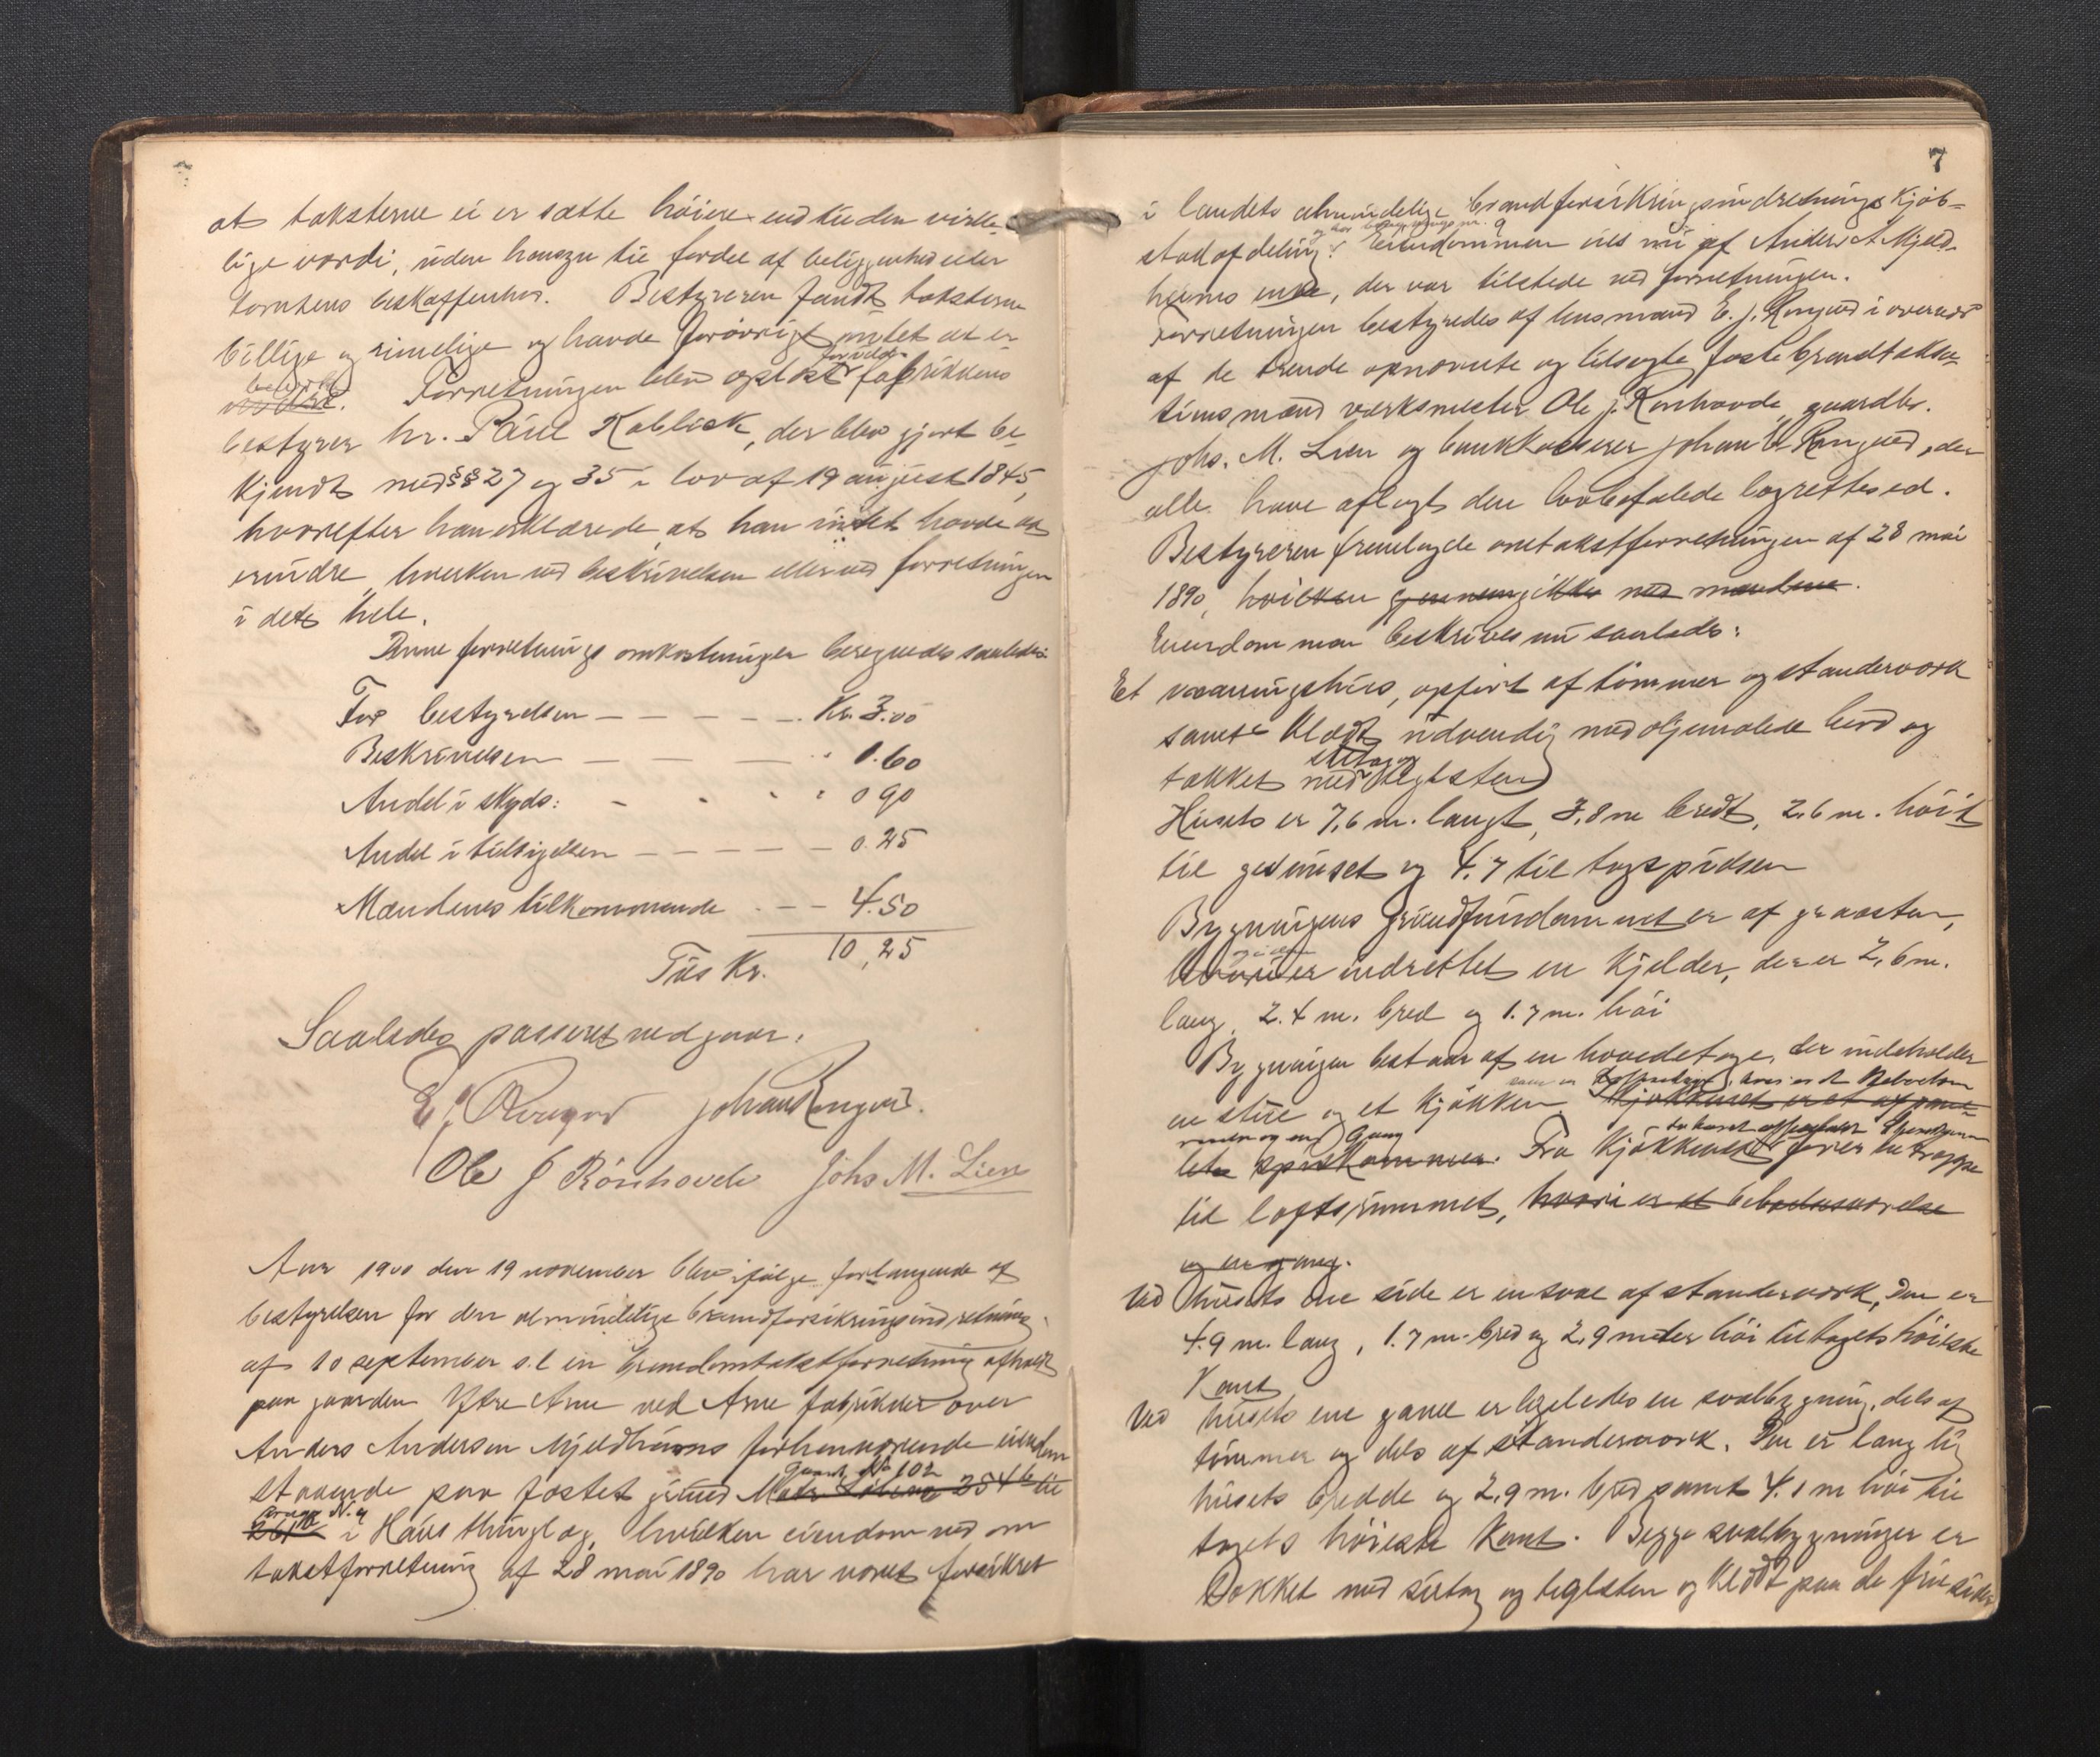 at taksterne ei er satte høiere end til den virke-
lige værdi, uden hensyn til fordel af beliggenhed eller
tomtens beskaffenhed. Bestyreren fandt taksterne
billige og rimelige og havde forøvrigt intet at er
Forretningen blev oplæst for fabrikkens
bestyrer hr. Paul Koblick, der blev gjort be-
kjendt med §§ 27 og 35 i lov af 19 august 1845,
hvorefter han erklærede, at han intet havde at
erindre, hverken ved beskrivelsen eller ved forretningen
i dets hele.
Denne forretnings omkostninger beregnedes saaledes:
For bestyrelsen — — — — — Kr. 3.00
Beskrivelsen — — — — " 1.60
Andel i skyds: - - " " 0 90
Andel i tilsigelsen — — — — — 0.25
Mændenes tilkommende - — — 4.50
Tils Kr. 10,25
Saaledes passeret vedgaar.
E. J. Rongved Johan Rongved.
Ole J Rönhovde Johs M. Lien
Aar 1900 den 19 november blev ifølge forlangende af
bestyrelsen for den almindelige brandforsikringsindretning
af 10 september s. l en brandomtakstforretning afholdt
paa gaarden Ytre Arne ved Arne fabrikker over
Anders Andersen Mjeldheims forhenværende eiendom
Gaards No 102
staaende paa fæstet grund Matr Løbeno 254 b til
Brugs No. 9
261 i Haus thinglag, hvilken eiendom ved om
takstforretning af 28 mai 1890 har været forsikret
7
i landets almindelige brandforsikringsindretnings Kjøb-
stadafdeling. Eiendommen eies nu af Anders A Mjeld-
heims enke, der var tilstede ved forretningen.
Forretningen bestyredes af lensmand E. J. Rongved i overvær
af de trende opnævnte og tilsagte faste brandtaksa-
tionsmænd værksmester Ole J. Rønhovde, gaardbr.
Johs. M. Lien og bankkasserer Johan Rongved, der
alle have aflagt den lovbefalede lagrettesed.
Bestyreren fremlagde omtakstforretningen af 28 mai
1890, hvilken gjennemgikkes med mændene.
Eiendommen beskrives nu saaledes:
Et vaaningshus, opført af tømmer og standerværk
samt klædt udvendig med oljemalede bord og
sutag og
tækket med teglsten
Huset er 7,6 m. langt, 3,8 m bredt, 2,6 m. høit
til gesimset og 4.7 til tagspidsen
Bygningens grundfundament er af graasten,
og i den
hvori er indrettet en kjelder, der er 2,6 m.
lang, 2.4 m. bred og 1.7 m. høi
Bygningen bestaar af en hovedetage, der indeholder
en stue og et kjøkken. Kjøkkenet er et af pane-
Gang
lete spiskammer. Fra kjøkkenet fører en trappe
til loftsrummet, hvori er et beboelsesværelse
og en gang.
Ved husets ene side er en sval af standerværk, Den er
4.9 m. lang, 1.7 m. bred og 2,9 meter høi til tagets høieste
Kant
Ved husets ene gavl er ligeledes en svalbygning, dels af
tømmer og dels af standerværk. Den er lang lig
husets bredde og 2,9 m. bred samt 4.1 m høi til
tagets høieste kant. Begge svalbygninger er
Tækket med sutag og teglsten og klædt paa de frie sider